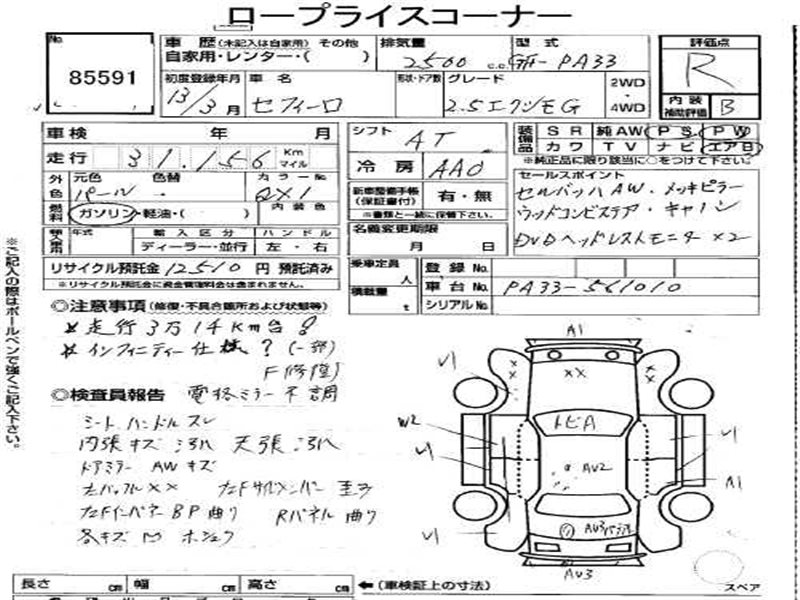 ロープライスコーナー
No 85591
車歴(未記入は自家用) その他
自家用・レンター・( )
排気量 2500 c.c.
型式 GF- PA33
評価点 R
内装補助評価 B
初度登録年月 13/3月
車名 セフィーロ
形状・ドア数
グレード 2.5エクシモG
2WD・4WD
車検 年 月
走行 31,156 Km マイル
シフト AT
冷房 AAC
装備品 SR 純AW PS PW
カワ TV ナビ エアB
※純正品に限り該当に○をつけて下さい。
外色 元色 パール・ 色替 カラーNo QX1
燃料 ガソリン・軽油・( ) 内装色
新車整備手帳(保証書付) 有・無
※書類と一緒に保管下さい。
セールスポイント
セルバッハAW・メッキピラー
ウッドコンビステア・キャノン
DVDヘッドレストモニター×2
輸入車用 年式 輸入区分 ハンドル
ディーラー・並行 左・右
名義変更期限
月 日
リサイクル預託金 12510 円 預託済み
※リサイクル預託金に資金管理料金は含まれません。
乗車定員 人
積載量 t
登録No.
車台No. PA33-561010
シリアルNo.
◎注意事項(修復・不具合箇所および状態等)
走行3万14Km台!
インフィニティー仕様?(一部)
F修障
◎検査員報告 電格ミラー不調
シートハンドルスレ
内張キズ汚れ 天張汚れ
ドアミラー AWキズ
左バッフル×× 左Fサイドメンバー歪み
左FインパネBP曲り Rパネル曲り
各キズ凹 ホシュウ
A1
トビA
W2
AU2
A1
AU3
長さ cm 幅 cm 高さ cm ←(車検証上の寸法)
スペア
※ご記入の際はボールペンで強くご記入下さい。